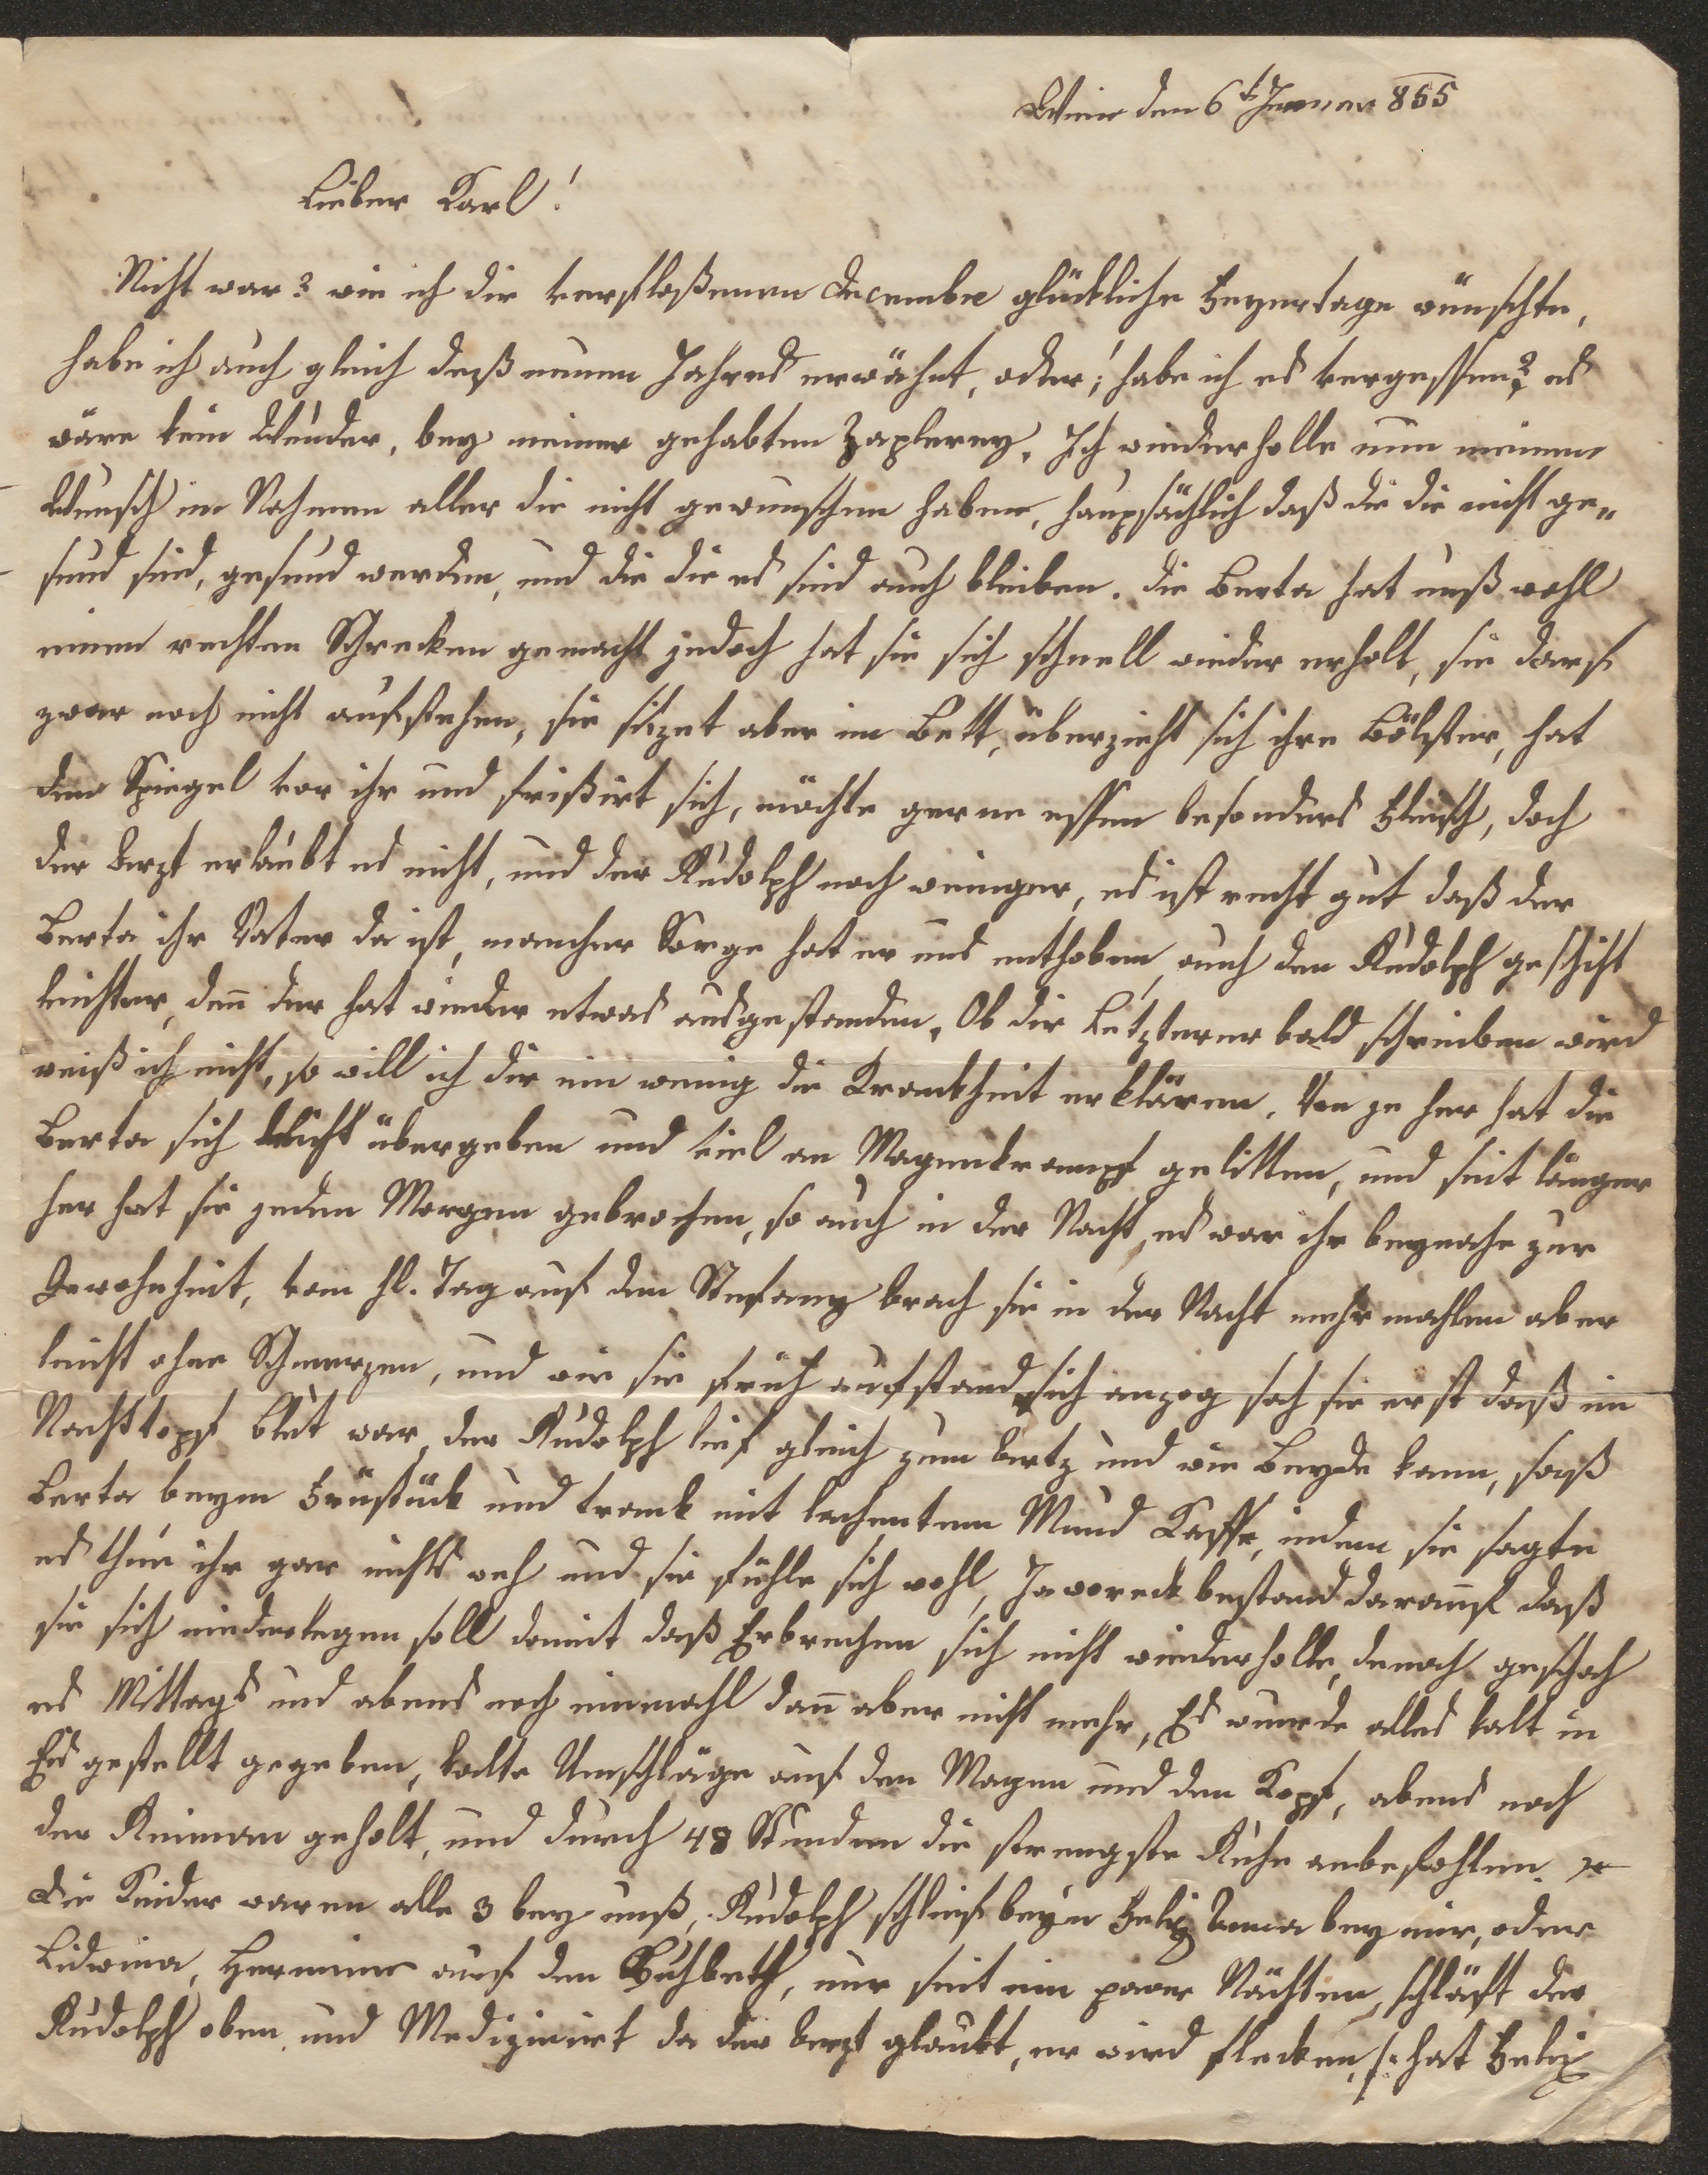 Wien den 6t Jenner 855
Lieber Karl!
Nicht war? wie ich dir verfloßenen Decembre glückliche Feyertage wünschte,
habe ich auch gleich deß neuen Jahres erwähnt, oder! habe ich es vergessen? es
wäre kein Wunder, bey meiner gehabten Zaplerey. Ich wiederholle nun meinen
Wunsch im Nahmen aller die nicht gewunschen haben, haupsächlich daß die die nicht ge„
sund sind, gesund werden, und die die es sind auch bleiben. die Berta hat unß wohl
einen rechten Schrecken gemacht jedoch hat sie sich schnell wieder erholt, sie darf
zwar noch nicht aufstehen, sie sizet aber im Bett, überzieht sich ihre Bölster, hat
den Spiegel vor ihr und frißirt sich, möchte gerne essen besonders Fleisch, doch
der Arzt erlaubt es nicht, und der Rudolph noch weniger, es ist recht gut daß der
Berta ihr Vater da ist, mancher Sorge hat er uns enthoben, auch den Rudolph geschiht
leichter, den̅ der hat wieder etwas ausgestanden. Ob dir Letzterer bald schreiben wird
weiß ich nicht, so will ich dir ein wenig die Krankheit erklären. Von je her hat die
Berta sich leicht übergeben und viel an Magenkrampf gelitten, und seit länger
her hat sie jeden Morgen gebrochen, so auch in der Nacht, es war ihr beynahe zur
Gewohnheit, vom hl. Tag auf den Stefany brach sie in der Nacht mehrmahlen aber
leicht ohne Schmerzen, und wie sie früh aufstand, sich anzog sah sie erst daß im
Nachttopf Blut war, der Rudolph lief gleich zum Artz und wie Beyde kam, saß
Berta beym Früstück und trank mit lachentem Mund Kaffe, indem sie sagte
es thue ihr gar nichts weh und sie fühle sich wohl, Javoreck bestand darauf daß
sie sich niederlegen soll damit daß Erbrechen sich nicht wiederholle, denoch geschah
es Mittags und abends noch einmahl dan̅ aber nicht mehr, Es wurde alles kalt in
Eis gestellt gegeben, kalte Umschläge auf den Magen und den Kopf, abends noch
der Reiman geholt, und durch 48 Stunden die strengste Ruhe anbefohlen.
Die Kinder waren alle 3 bey unß, Rudolph schlief beym Felix Anna bey mir, oder
Lidwina, Hermine auf den Ruhbeth, nur seit ein paar Nächten, schläft der
Rudolph oben, und Medizinirt da der Arzt glaubt, er wird flecken, /: hat Felix